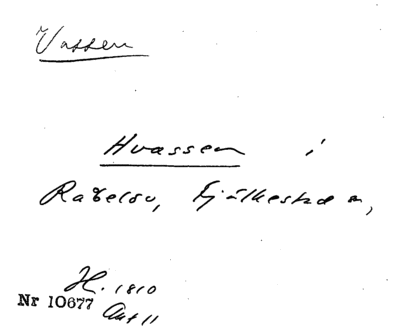 Vassen
Hvassen i
Rabelöv, Fjälkestad sn,
H. 1810
Nr 10677 Akt 11